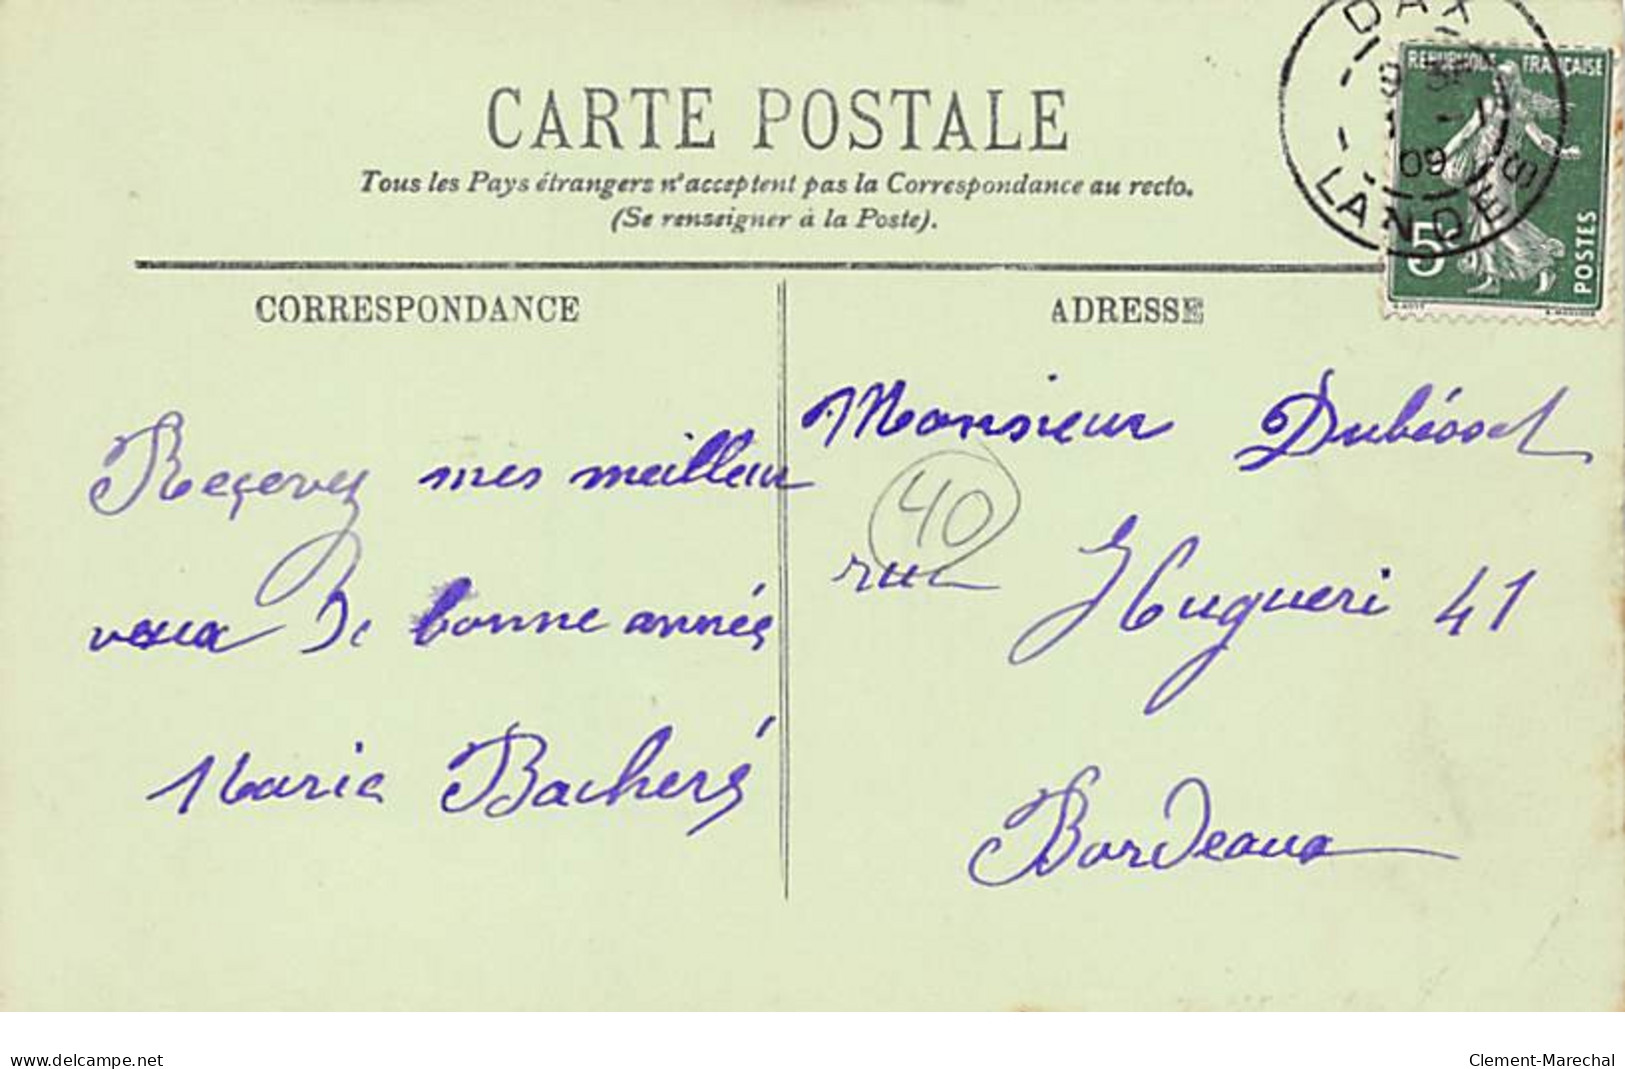 CARTE POSTALE
Tous les Pays étrangers n'acceptent pas la Correspondance au recto.
(Se renseigner à la Poste).
DAX
09
LANDES
REPUBLIQUE FRANÇAISE
5c
POSTES
CORRESPONDANCE
ADRESSE
Reçevez mes meilleur
vœux de bonne année
Maria Bacheré
Monsieur Dubéosd
40
rue Hugueri 41
Bordeaux
www.delcampe.net
Clement-Marechal